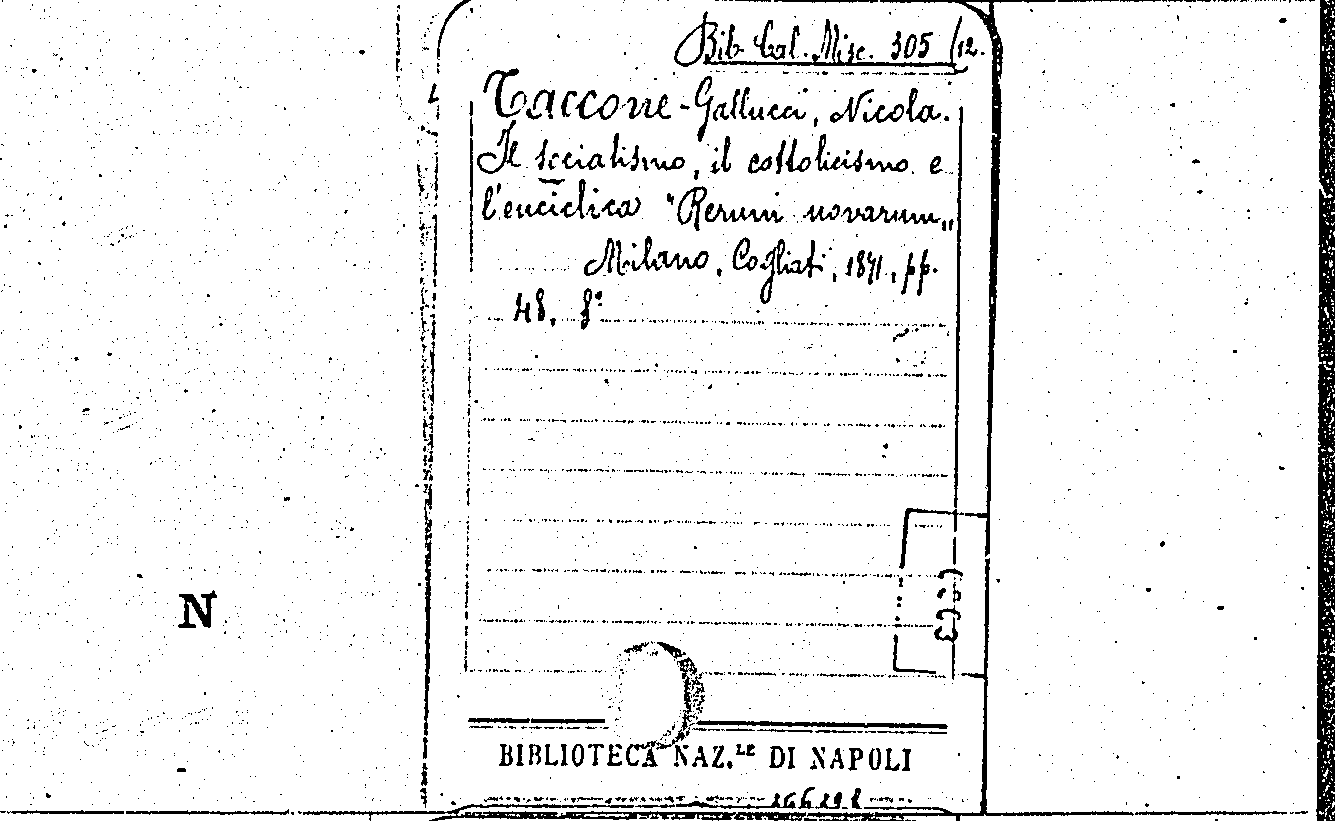 Bib. Cal. Misc. 305 (12.
Taccone-Gallucci, Nicola.
Il socialismo, il cattolicismo e
l'enciclica "Rerum novarum„
Milano, Cogliati, 1891, pp.
48. 8°
N
BIBLIOTECA NAZ.LE DI NAPOLI